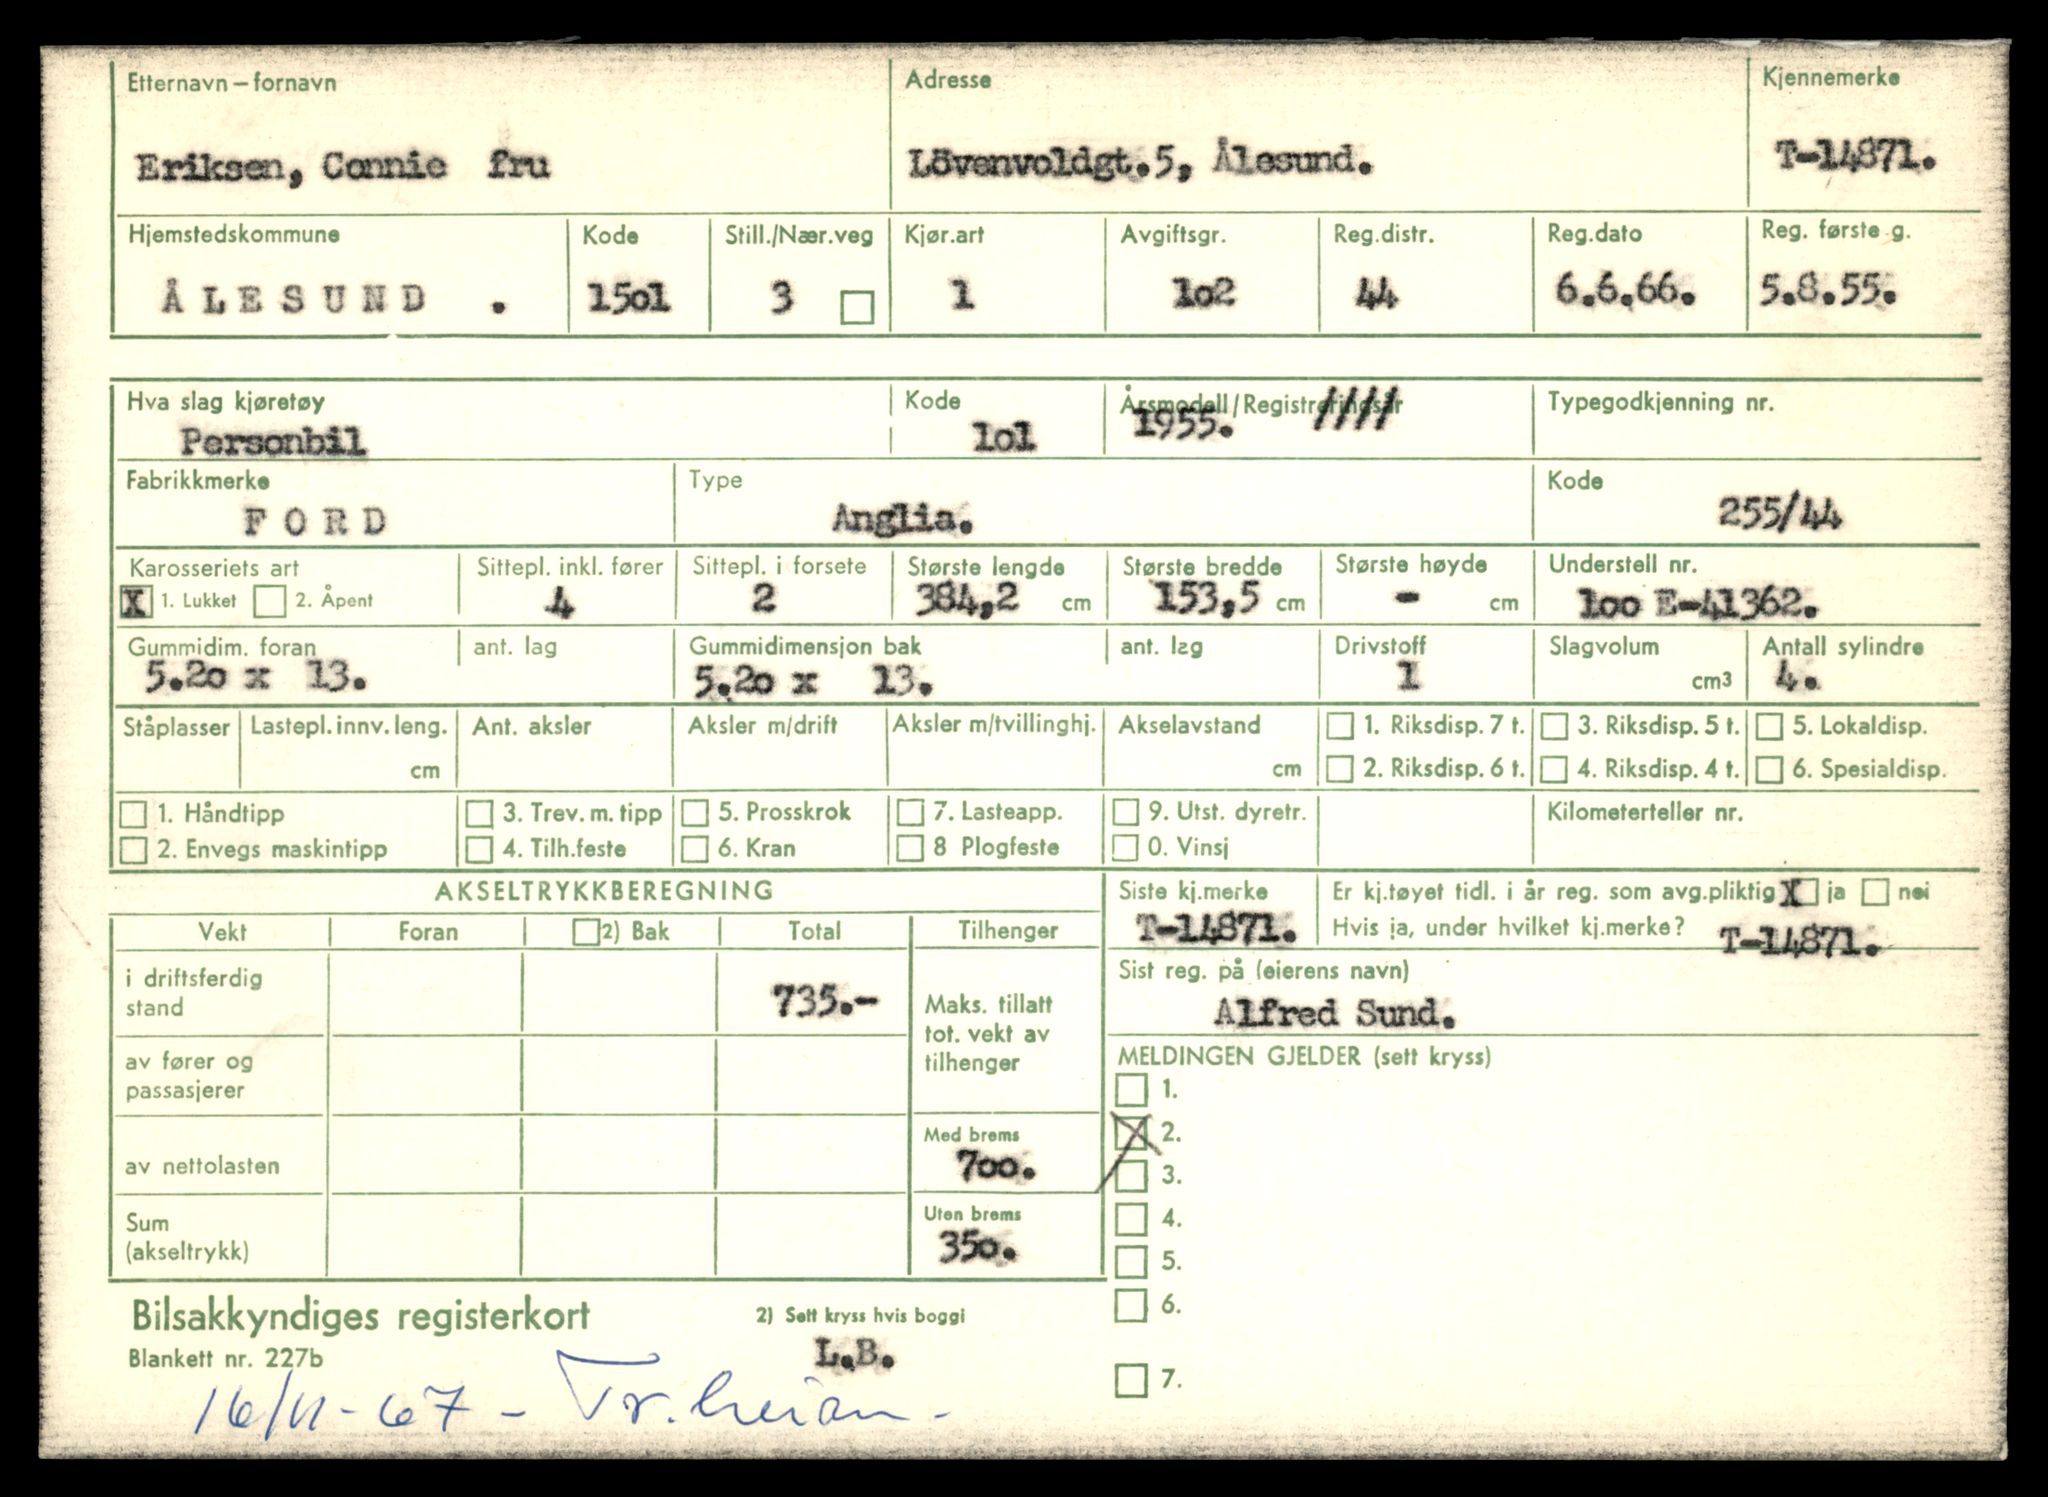 Etternavn – fornavn Adresse Kjennemerke
Eriksen, Connie fru Lövenvoldgt.5, Ålesund. T-14871.
Hjemstedskommune Kode Still./Nær.veg Kjør.art Avgiftsgr. Reg.distr. Reg.dato Reg. første g.
ÅLESUND . 15o1 3 1 1o2 44 6.6.66. 5.8.55.
Hva slag kjøretøy Kode Årsmodell/Registreringsår Typegodkjenning nr.
Personbil 1o1 1955. ////
Fabrikkmerke Type Kode
FORD Anglia. 255/44
Karosseriets art Sittepl. inkl. fører Sittepl. i forsete Største lengde Største bredde Største høyde Understell nr.
X 1. Lukket 2. Åpent 4 2 384,2 cm 153,5 cm - cm 1oo E-41362.
Gummidim. foran ant. lag Gummidimensjon bak ant. lag Drivstoff Slagvolum Antall sylindre
5.2o x 13. 5.2o x 13. 1 cm3 4.
Ståplasser Lastepl. innv. leng. Ant. aksler Aksler m/drift Aksler m/tvillinghj. Akselavstand 1. Riksdisp. 7 t. 3. Riksdisp. 5 t. 5. Lokaldisp.
cm cm 2. Riksdisp. 6 t. 4. Riksdisp. 4 t. 6. Spesialdisp.
1. Håndtipp 3. Trev. m. tipp 5. Prosskrok 7. Lasteapp. 9. Utst. dyretr. Kilometerteller nr.
2. Envegs maskintipp 4. Tilh.feste 6. Kran 8 Plogfeste 0. Vinsj
AKSELTRYKKBEREGNING Siste kj.merke Er kj.tøyet tidl. i år reg. som avg.pliktig X ja nei
T-14871. Hvis ja, under hvilket kj.merke? T-14871.
Vekt Foran 2) Bak Total Tilhenger
Sist reg. på (eierens navn)
i driftsferdig
stand 735.- Maks. tillatt
tot. vekt av
tilhenger
Alfred Sund.
av fører og
passasjerer
MELDINGEN GJELDER (sett kryss)
1.
X 2.
Med brems
av nettolasten 700.
3.
Sum Uten brems
(akseltrykk) 350.
4.
5.
6.
7.
Bilsakkyndiges registerkort 2) Sett kryss hvis boggi
Blankett nr. 227b L.B.
16/11-67 -